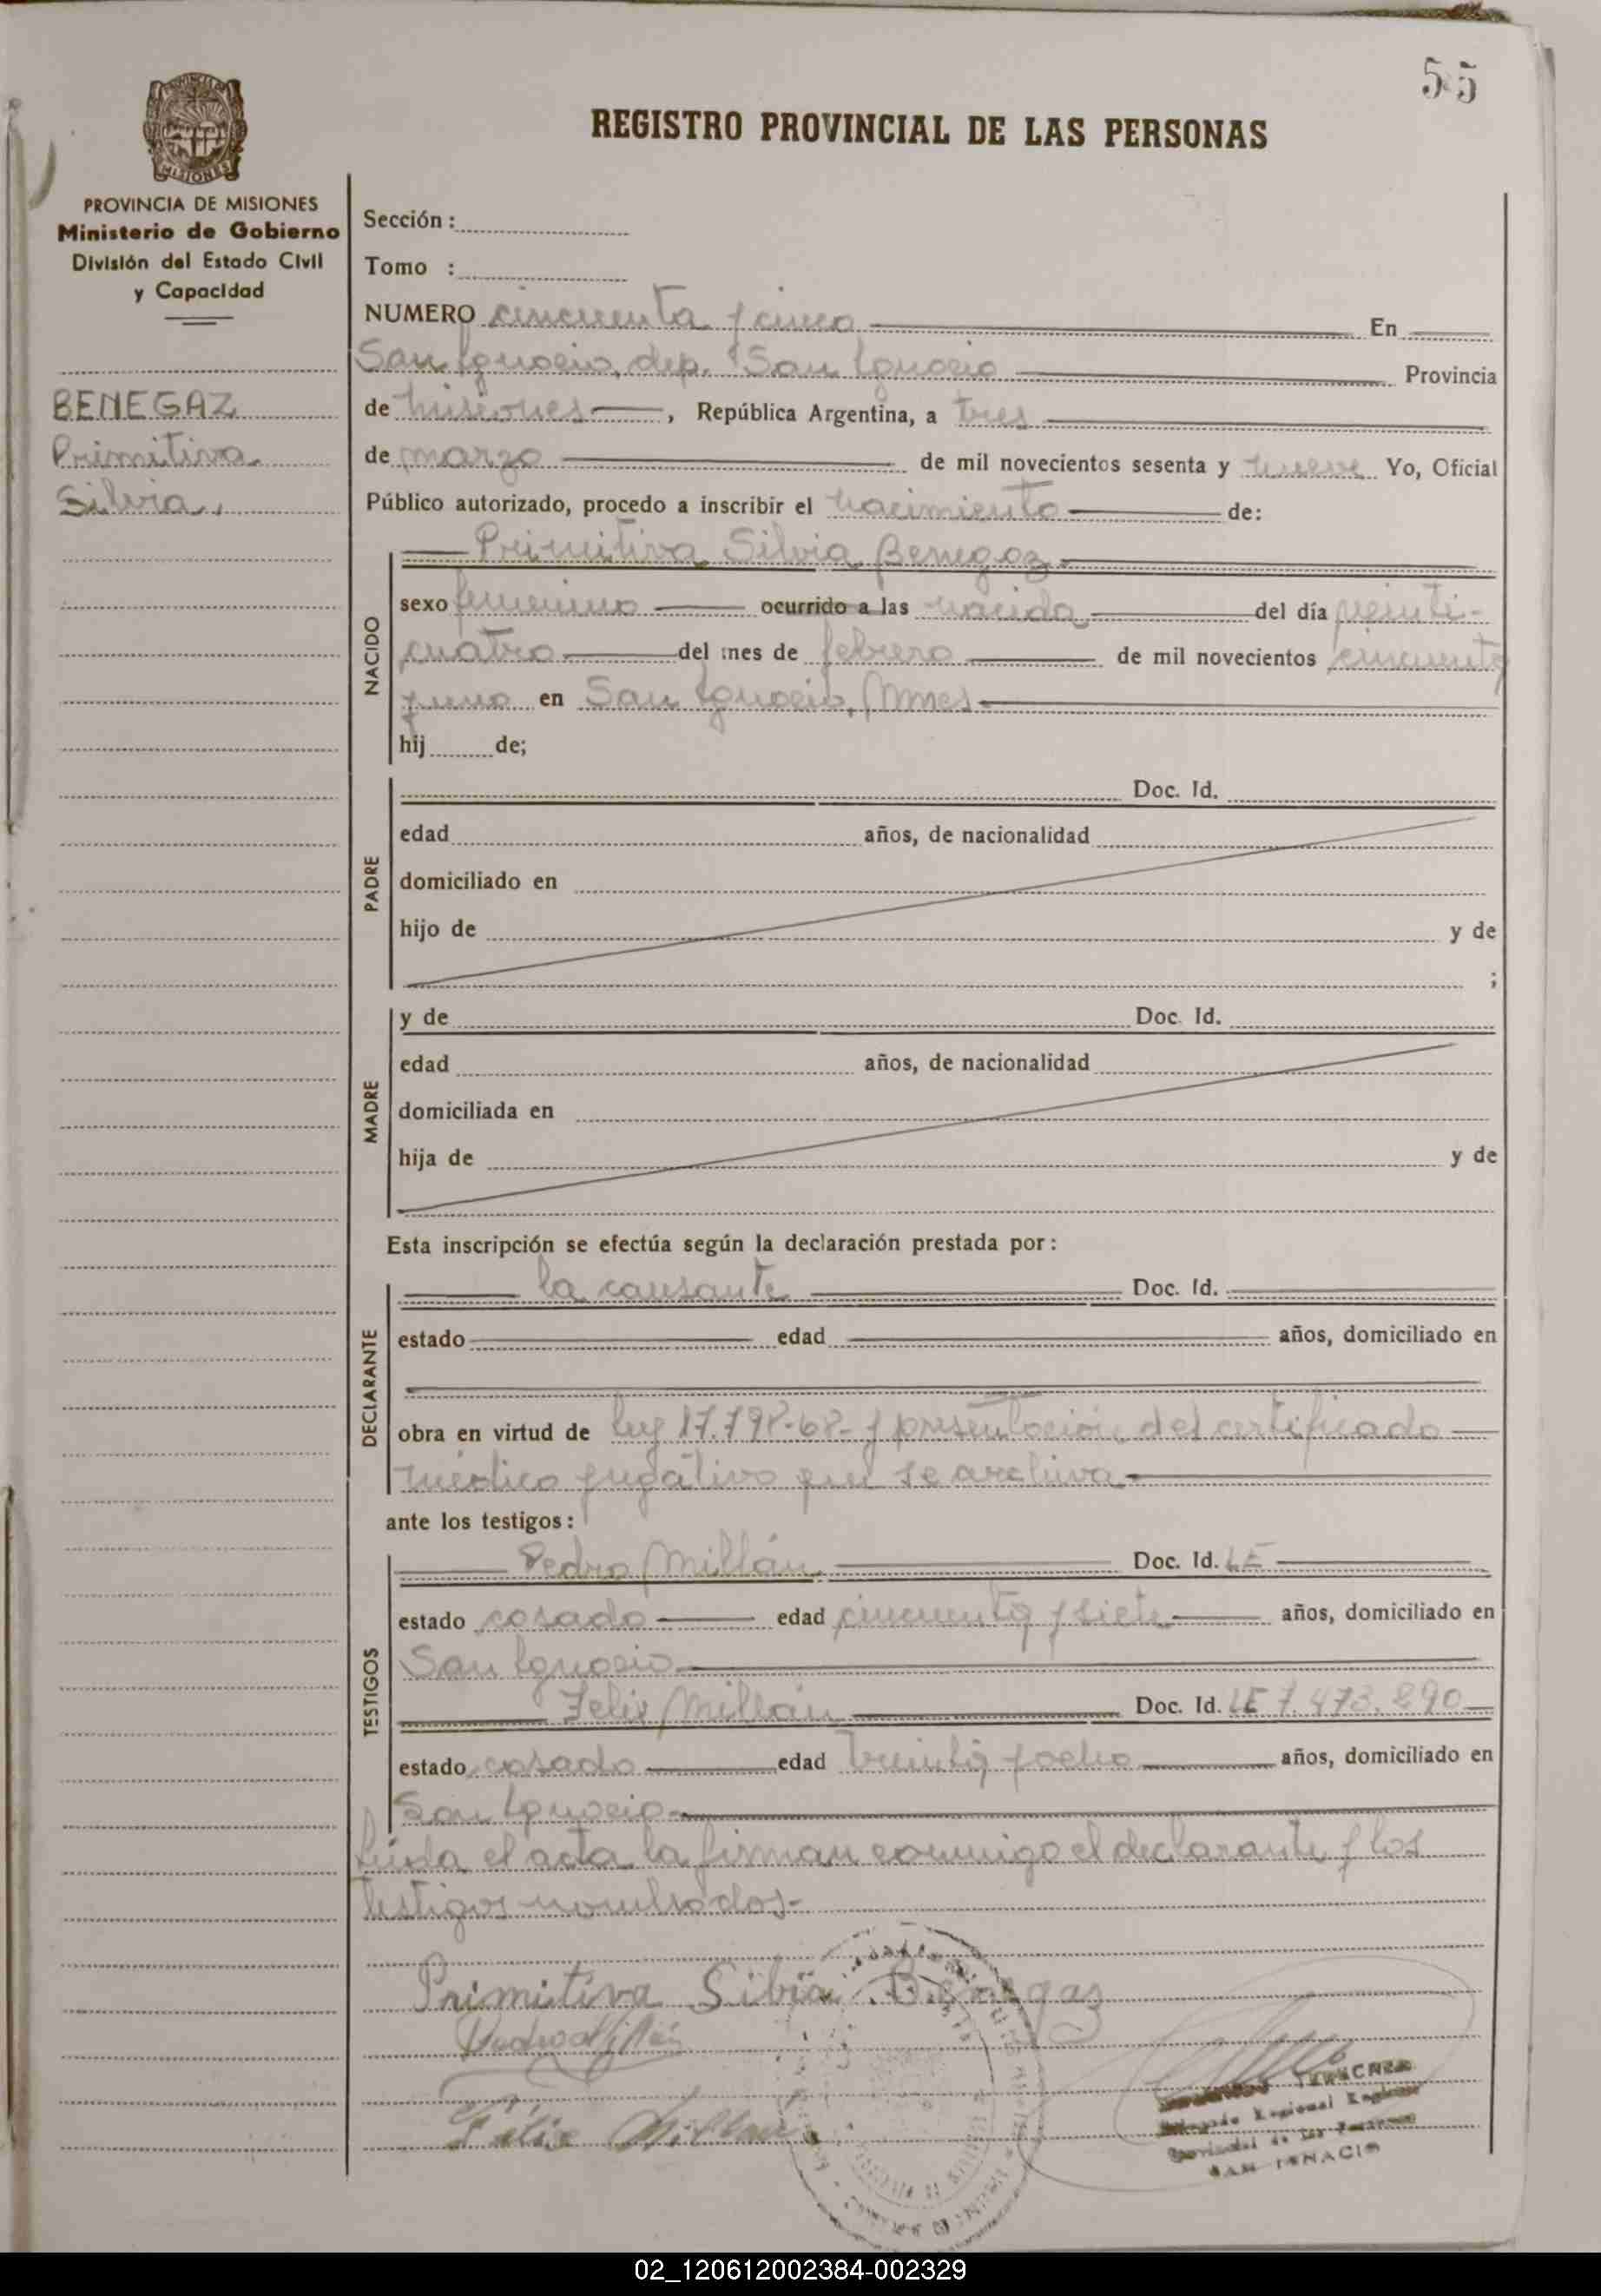 55
REGISTRO PROVINCIAL DE LAS PERSONAS
PROVINCIA DE MISIONES
Ministerio de Gobierno
División del Estado Civil
y Capacidad
BENEGAZ
Primitiva
Silvia,
Sección :
Tomo :
NUMERO cincuenta y cinco En
San Ignacio, dep. San Ignacio Provincia
de Misiones, República Argentina, a tres
de marzo de mil novecientos sesenta y nueve Yo, Oficial
Público autorizado, procedo a inscribir el nacimiento de:
NACIDO
Primitiva Silvia Benegaz
sexo femenino ocurrido a las nacida del día veinti-
cuatro del mes de febrero de mil novecientos cincuenta
y uno en San Ignacio, Mnes
hij de;
PADRE
Doc. Id.
edad años, de nacionalidad
domiciliado en
hijo de y de
;
MADRE
y de Doc. Id.
edad años, de nacionalidad
domiciliada en
hija de y de
Esta inscripción se efectúa según la declaración prestada por:
DECLARANTE
la causante Doc. Id.
estado edad años, domiciliado en
obra en virtud de ley 17.798-68- y presentación del certificado
médico que se archiva
ante los testigos:
TESTIGOS
Pedro Millán Doc. Id. LE
estado casado edad cincuenta y siete años, domiciliado en
San Ignacio
Felix Millán Doc. Id. LE 7.473.890
estado casado edad treinta y ocho años, domiciliado en
San Ignacio
Leída el acta la firman conmigo el declarante y los
testigos nombrados-
Primitiva Silvia Benegaz
Pedro Millán
Felix Millan
Regional
Provincial de las Personas
SAN IGNACIO
02_120612002384-002329